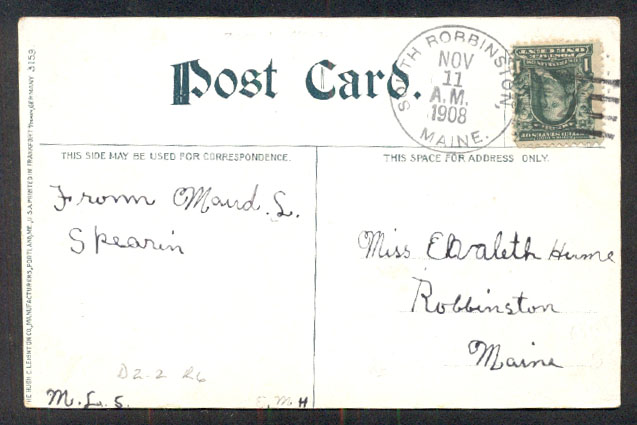 Post Card.
SOUTH ROBBINSTON
NOV
11
A.M.
1908
MAINE.
1
THIS SIDE MAY BE USED FOR CORRESPONDENCE.
THIS SPACE FOR ADDRESS ONLY.
From Maud. L.
Spearin
Miss Elvaleth Hume
Robbinston
Maine
D2-2 R6
M. L. S.
C. M. H
THE HUGH C. LEIGHTON CO., MANUFACTURERS, PORTLAND, ME., U.S.A. PRINTED IN FRANKFORT GERMANY 3159